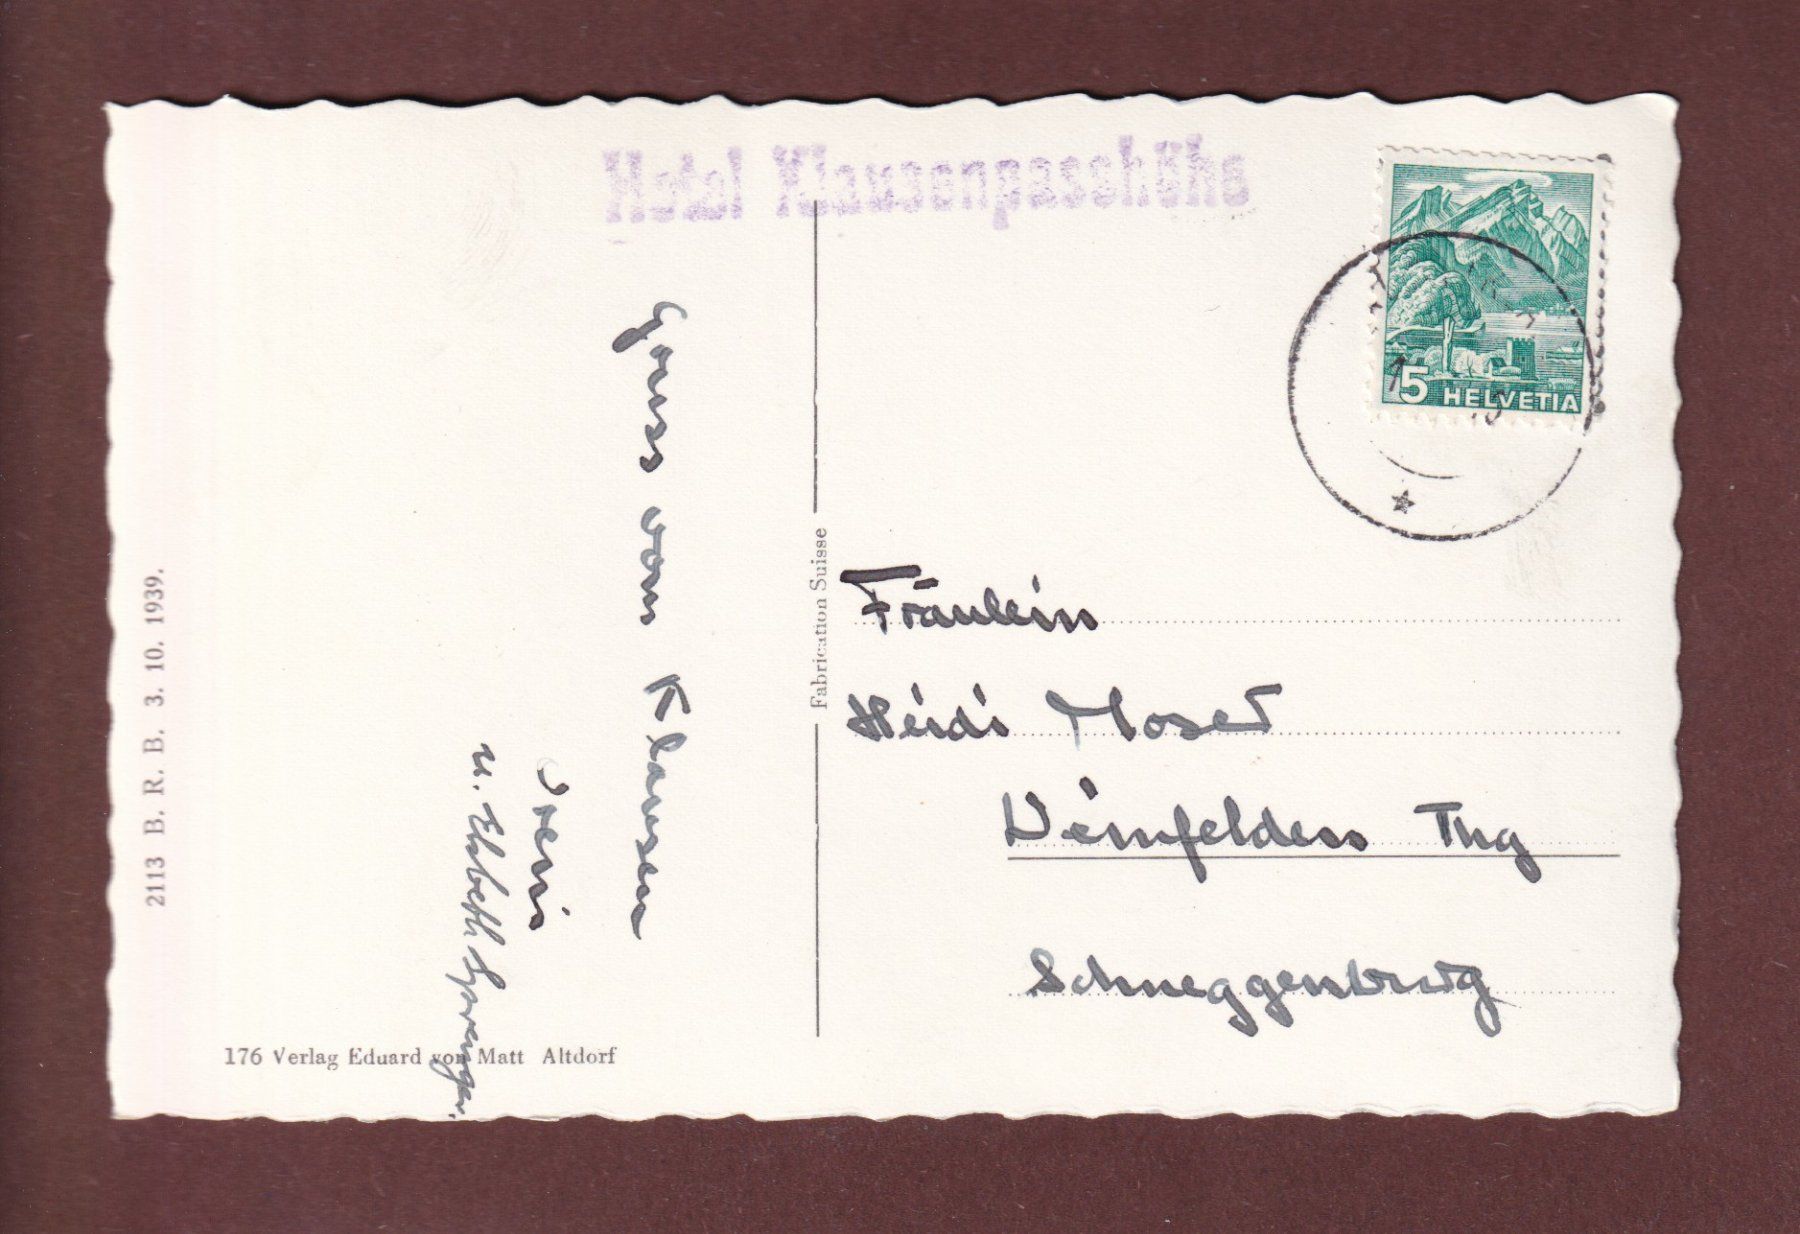 Hotel Klausenpasshöhe
5 HELVETIA
Gruss vom Klausen
Vreni
u. Elsbeth
Fräulein
Heidi Moser
Weinfelden Thg
Schneggenburg
Fabrication Suisse
2113 B. R. B. 3. 10. 1939.
176 Verlag Eduard von Matt Altdorf